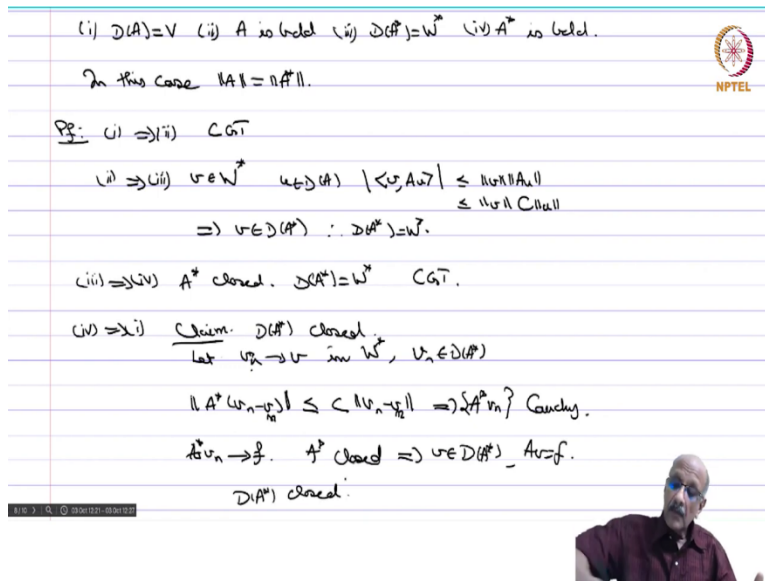 (i) D(A)=V (ii) A is bdd (iii) D(A*)=W* (iv) A* is bdd.
In this case ‖A‖=‖A*‖.
NPTEL
Pf: (i) ⇒(ii) CGT
(ii) ⇒(iii) v∈W* u∈D(A) |<v,Au>| ≤ ‖v‖‖Au‖
≤ ‖v‖ C‖u‖
⇒ v∈D(A*) ∴ D(A*)=W*.
(iii)⇒(iv) A* closed. D(A*)=W* CGT.
(iv) ⇒(i) Claim. D(A*) closed.
Let vₙ→v in W*, vₙ∈D(A*)
‖A*(vₙ-vₘ)‖ ≤ C‖vₙ-vₘ‖ ⇒{A*vₙ} Cauchy.
A*vₙ→f. A* closed ⇒ v∈D(A*) Av=f.
D(A*) closed.
8/10 03 Oct 12:21 - 03 Oct 12:27